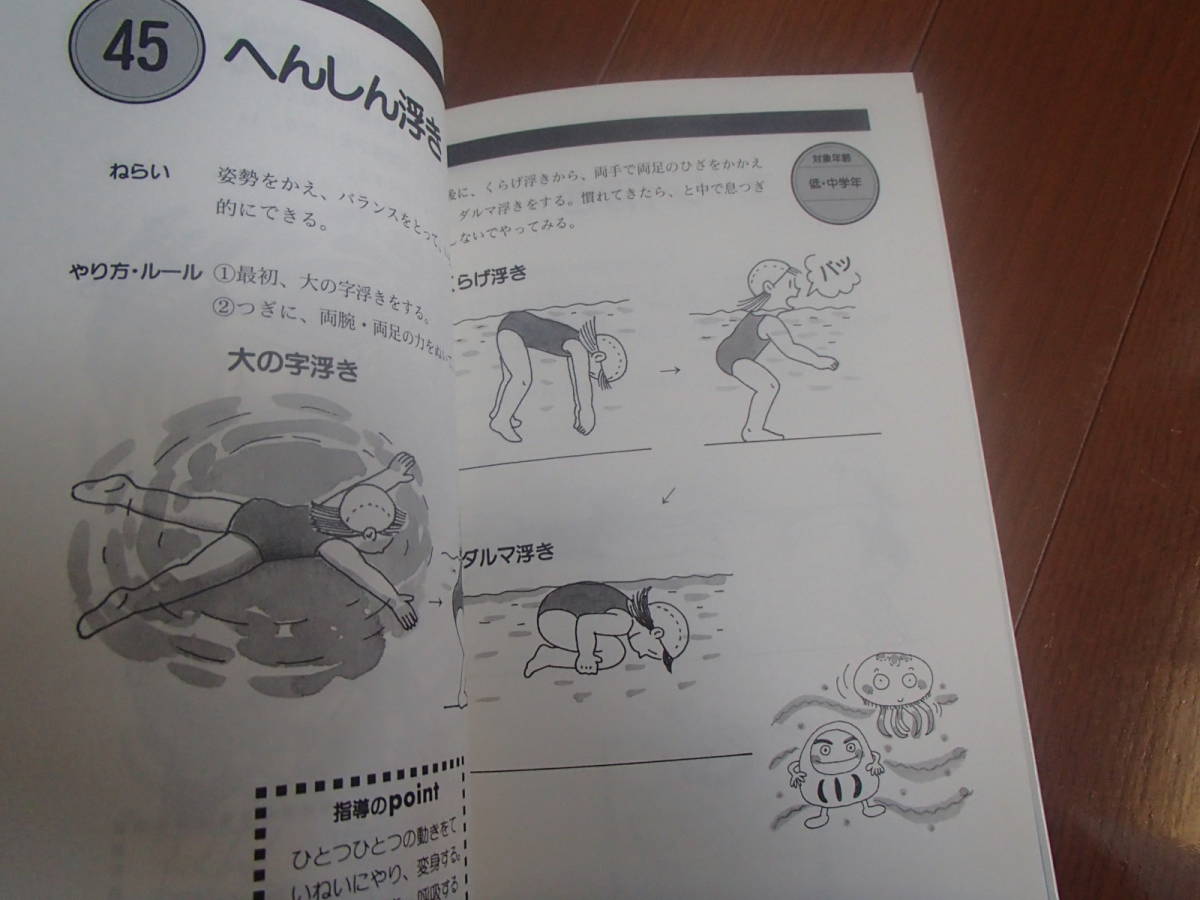 45
へんしん浮き
ねらい
姿勢をかえ、バランスをとって、
的にできる。
やり方・ルール ①最初、大の字浮きをする。
②つぎに、両腕・両足の力をぬい
大の字浮き
→
指導のpoint
ひとつひとつの動きをて
いねいにやり、変身する。
呼吸する
後に、くらげ浮きから、両手で両足のひざをかかえ
ダルマ浮きをする。慣れてきたら、と中で息つぎ
ないでやってみる。
対象年齢
低・中学年
くらげ浮き
パッ
→
↙
ダルマ浮き